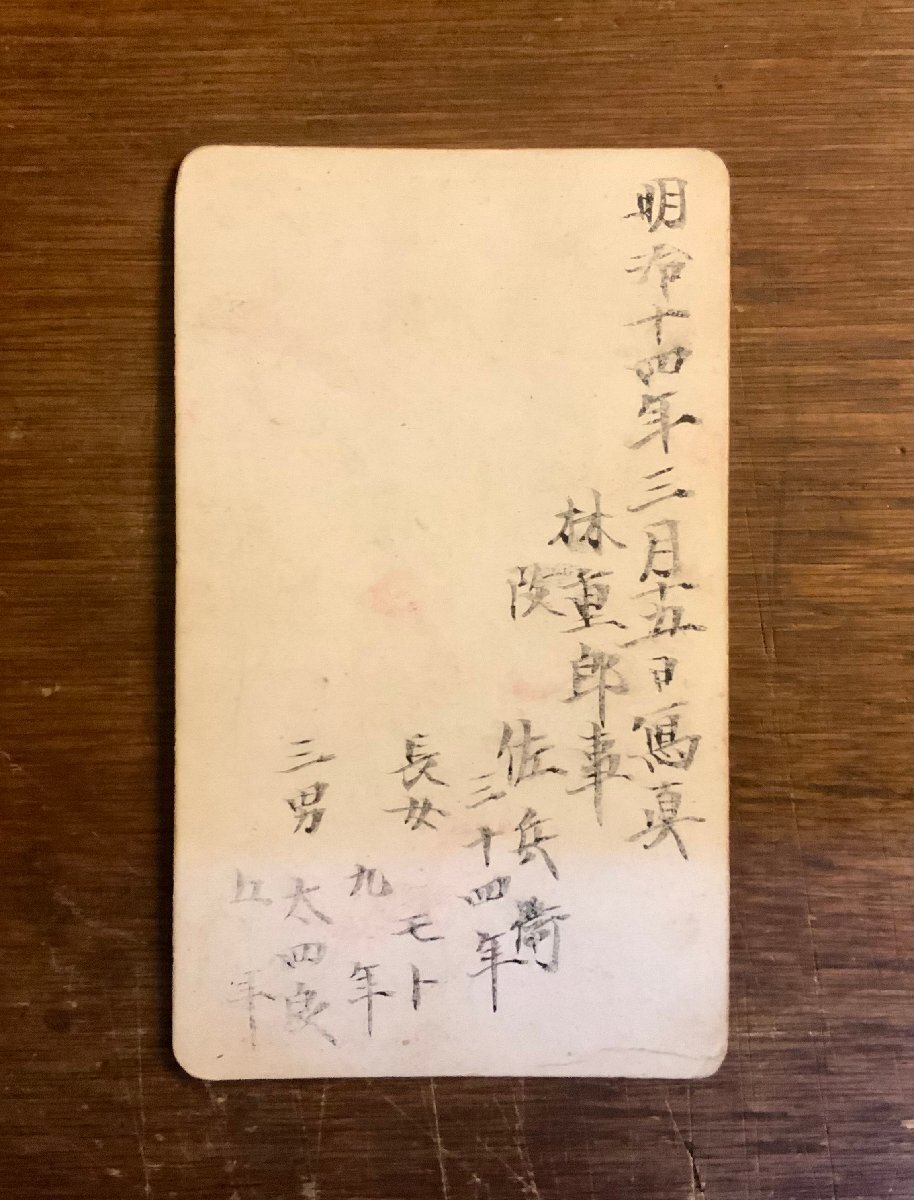 明治十四年三月十五日寫真
林重郎事
改
佐兵衛
三十四年
長女
モト
九年
三男
太四良
五年